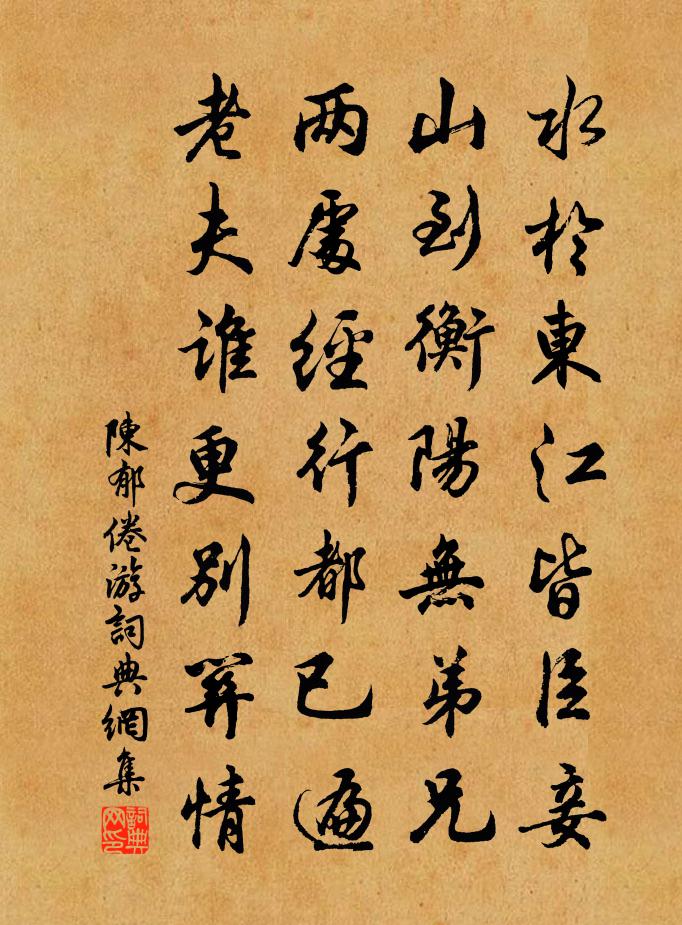 水於東江皆臣妾
山到衡陽無弟兄
兩處經行都已遍
老夫誰更別關情
陳郁倦游詞典網集
詞典网印